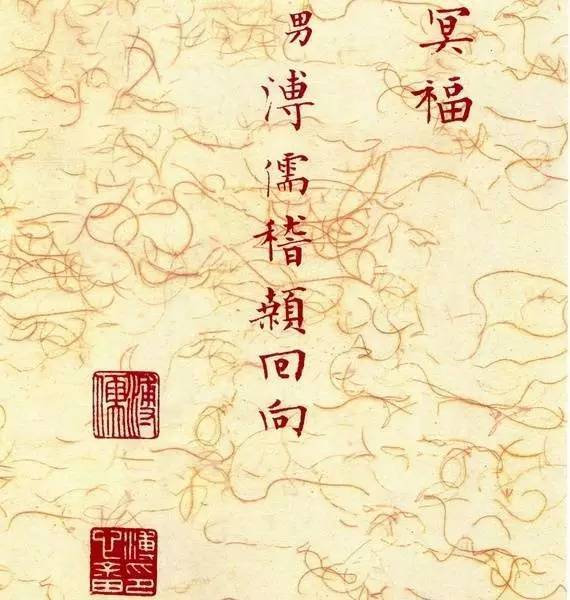 冥福
男溥儒稽顙回向
溥儒